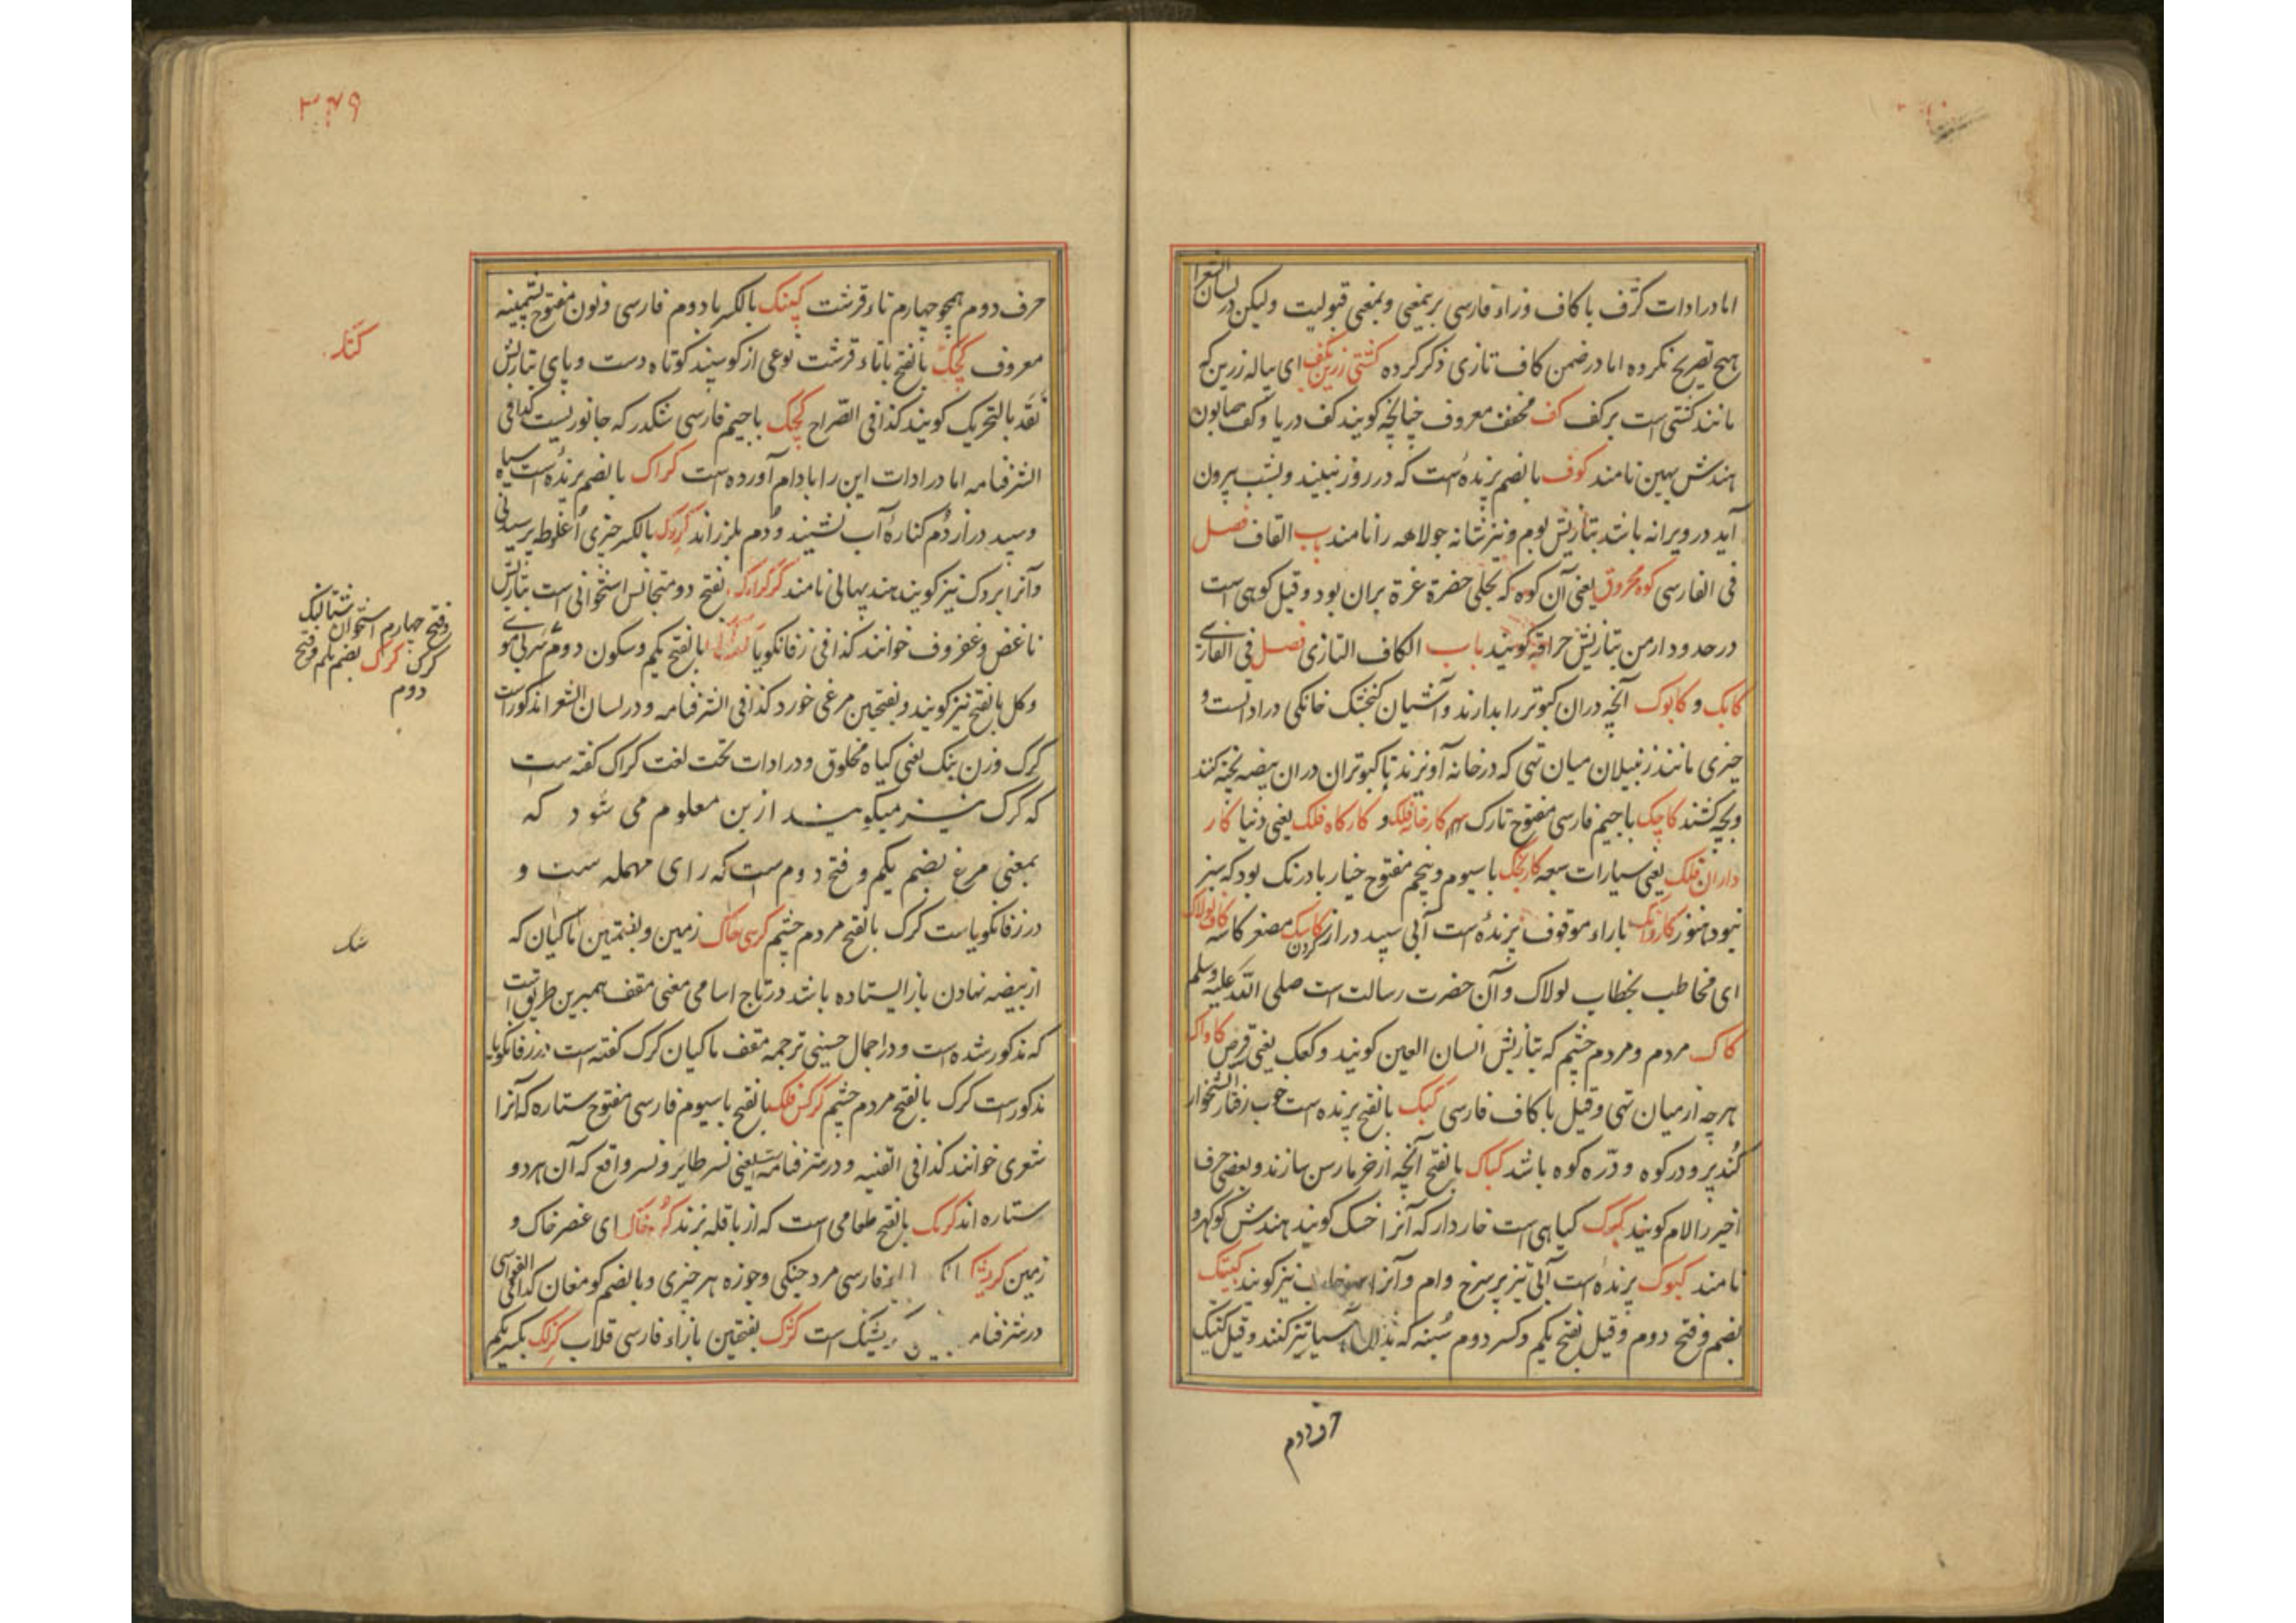 اما در ادات کژف با کاف و زاء فارسی برینمعنی و بمعنی قبولیت ولیکن در لسان الشعرا
هیچ تصریح نکرده اما در ضمن کاف تازی ذکر کرده کشتی زرین بکف ای پیاله زرین که
مانند کشتی است بر کف کف مخفف معروف چنانچه کویند کف دریا و کف صابون
هندش پهین نامند کوف بالضم پرنده است که در روز نبیند و بشب بیرون
آید در ویرانه باشد بتازیش بوم و نیز شانه جولاهه را نامند باب القاف فصل
فی الفارسی کوه محروق یعنی آن کوه که تجلی حضرة عزة بران بود و قیل کوهی است
در حدود ارمن بتازیش حراقه کویند باب الکاف التازی فصل فی الفارسی
کابک و کابوک آنچه دران کبوتر را بدارند و آشیان کنجشک خانکی در ادات است و
چیزی مانند زنبیلان میان تهی که در خانه آویزند تا کبوتران دران بیضه بچه کنند
و بچه کشند کاچک با جیم فارسی مفتوح تارک سر کارخانه فلک و کارکاه فلک یعنی دنیا کار
داران فلک یعنی سیارات سبعه کارنجک با سیوم و پنجم مفتوح خیار بادرنک بود که سبز
نبود هنوز کاروانک باراء موقوف پرنده است آبی سپید دراز کردن کاسک مصغر کاسه کاف لولاک
ای مخاطب بخطاب لولاک و آن حضرت رسالت است صلی الله علیه وسلم
کاک مردم و مردم چشم که بتازیش انسان العین کویند و کعک یعنی قرص کاواک
هرچه از میان تهی و قیل با کاف فارسی کبک بالفتح پرنده است خوب رفتار
کند پر و در کوه و دره کوه باشد کباک بالفتح آنچه از خرما رسن سازند و بعضی حرف
اخیر را لام کویند کبوک کیاهی است خاردار که آنرا خسک کویند هندش کوکهرو
نامند کبوک پرنده است آبی تیز پر سرخ وام و آنرا سرخاب نیز کویند کبتک
بضم و فتح دوم و قیل بفتح یکم و کسر دوم که بدان آسیا تیز کنند و قیل کتبک
۳۴۹
حرف دوم همچو چهارم تاء قرشت کپنک بالکسر با دوم فارسی و نون مفتوح پشمینه
معروف کچک بالفتح با تاء قرشت نوعی از کوسپند کوتاه دست و پای بتازیش
نقد بالتحریک کویند کذا فی الصراح کچک با جیم فارسی که جانوریست کذا فی
الشرفنامه اما در ادات این را با دام آورده است کراک بالضم پرنده است سیاه
و سپید دراز دم کناره آب نشیند و دم بلرزاند کروک بالکسر چیزی اغلوطه پرسیدنی
و آنرا بردک نیز کویند هند پهالی نامند کرکراک بفتح دو متجانس استخوانی است بتازیش
ناغض و غضروف خوانند کذا فی زفانکویا بالفتح یکم و سکون دوم سر بی موی
و کل بالفتح نیز کویند و بفتحین مرغی خورد کذا فی الشرفنامه و در لسان الشعرا مذکور است
کرک وزن ینک یعنی کیاه مخلوق و در ادات تحت لغت کراک کفته است
که کرک نیز میکویند ازین معلوم می شود که
بمعنی مرغ بضم یکم و فتح دوم است که رای مهمله ست و
در زفانکویاست کرک بالفتح مردم چشم کرسی خاک زمین و بضمتین ماکیان که
از بیضه نهادن باز ایستاده باشد در تاج اسامی معنی مقف همبرین طریق است
که مذکور شده است و در اجمال حسینی ترجمه مقف ماکیان کرک کفته است در زفانکویا
مذکورست کرک بالفتح مردم چشم کرکس فلک بالفتح با سیوم فارسی مفتوح ستاره که آنرا
شعری خوانند کذا فی القنیه و در شرفنامه است یعنی نسر طایر و نسر واقع که آن هر دو
ستاره اند کرمک بالفتح طعامی است که از باقله پزند کره خاک ای عنصر خاک و
زمین فارسی مرد جنکی و جوزه هر چیزی و بالضم کو مغان کذا فی
در شرفنامه است کژک بفتحتین بازاء فارسی قلاب کزلک بکسر یکم
کتک
و فتح چهارم استخوان شتالنک
کرک کرک بضم یکم و فتح
دوم